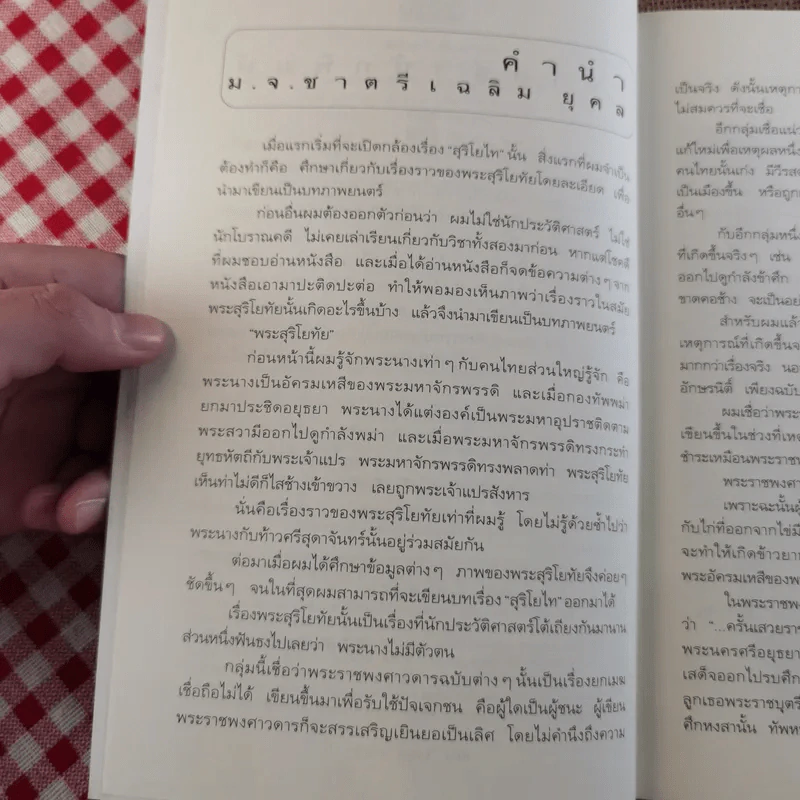 คำนำ
ม.จ.ชาตรีเฉลิม ยุคล
เมื่อแรกเริ่มที่จะเปิดกล้องเรื่อง "สุริโยไท" นั้น สิ่งแรกที่ผมจำเป็น
ต้องทำก็คือ ศึกษาเกี่ยวกับเรื่องราวของพระสุริโยทัยโดยละเอียด เพื่อ
นำมาเขียนเป็นบทภาพยนตร์
ก่อนอื่นผมต้องออกตัวก่อนว่า ผมไม่ใช่นักประวัติศาสตร์ ไม่ใช่
นักโบราณคดี ไม่เคยเล่าเรียนเกี่ยวกับวิชาทั้งสองมาก่อน หากแต่โชคดี
ที่ผมชอบอ่านหนังสือ และเมื่อได้อ่านหนังสือก็จดข้อความต่างๆ จาก
หนังสือเอามาปะติดปะต่อ ทำให้พอมองเห็นภาพว่าเรื่องราวในสมัย
พระสุริโยทัยนั้นเกิดอะไรขึ้นบ้าง แล้วจึงนำมาเขียนเป็นบทภาพยนตร์
"พระสุริโยทัย"
ก่อนหน้านี้ผมรู้จักพระนางเท่าๆ กับคนไทยส่วนใหญ่รู้จัก คือ
พระนางเป็นอัครมเหสีของพระมหาจักรพรรดิ และเมื่อกองทัพพม่า
ยกมาประชิดอยุธยา พระนางได้แต่งองค์เป็นพระมหาอุปราชติดตาม
พระสวามีออกไปดูกำลังพม่า และเมื่อพระมหาจักรพรรดิทรงกระทำ
ยุทธหัตถีกับพระเจ้าแปร พระมหาจักรพรรดิทรงพลาดท่า พระสุริโยทัย
เห็นท่าไม่ดีก็ไสช้างเข้าขวาง เลยถูกพระเจ้าแปรสังหาร
นั่นคือเรื่องราวของพระสุริโยทัยเท่าที่ผมรู้ โดยไม่รู้ด้วยซ้ำไปว่า
พระนางกับท้าวศรีสุดาจันทร์นั้นอยู่ร่วมสมัยกัน
ต่อมาเมื่อผมได้ศึกษาข้อมูลต่างๆ ภาพของพระสุริโยทัยจึงค่อยๆ
ชัดขึ้นๆ จนในที่สุดผมสามารถที่จะเขียนบทเรื่อง "สุริโยไท" ออกมาได้
เรื่องพระสุริโยทัยนั้นเป็นเรื่องที่นักประวัติศาสตร์โต้เถียงกันมานาน
ส่วนหนึ่งฟันธงไปเลยว่า พระนางไม่มีตัวตน
กลุ่มนี้เชื่อว่าพระราชพงศาวดารฉบับต่างๆ นั้นเป็นเรื่องยกเมฆ
เชื่อถือไม่ได้ เขียนขึ้นมาเพื่อรับใช้ปัจเจกชน คือผู้ใดเป็นผู้ชนะ ผู้เขียน
พระราชพงศาวดารก็จะสรรเสริญเยินยอเป็นเลิศ โดยไม่คำนึงถึงความ
เป็นจริง ดังนั้นเหตุกา
ไม่สมควรที่จะเชื่อ
อีกกลุ่มเชื่อแน่ว
แก้ใหม่เพื่อเหตุผลหนึ่ง
คนไทยนั้นเก่ง มีวีรส
เป็นเมืองขึ้น หรือถูก
อื่นๆ
กับอีกกลุ่มหนึ่ง
ที่เกิดขึ้นจริงๆ เช่น
ออกไปดูกำลังข้าศึก
ขาดคอช้าง จะเป็นอย
สำหรับผมแล้ว
เหตุการณ์ที่เกิดขึ้นจ
มากกว่าเรื่องจริง นอ
อักษรนิติ์ เพียงฉบับ
ผมเชื่อว่าพระร
เขียนขึ้นในช่วงที่เหต
ชำระเหมือนพระราชพ
พระราชพงศา
เพราะฉะนั้นผู้
กับไก่ที่ออกจากไข่มี
จะทำให้เกิดข้าวยาก
พระอัครมเหสีของพ
ในพระราชพง
ว่า "...ครั้นเสวยราช
พระนครศรีอยุธยา
เสด็จออกไปรบศึก
ลูกเธอพระราชบุตรี
ศึกหงสานั้น ทัพห